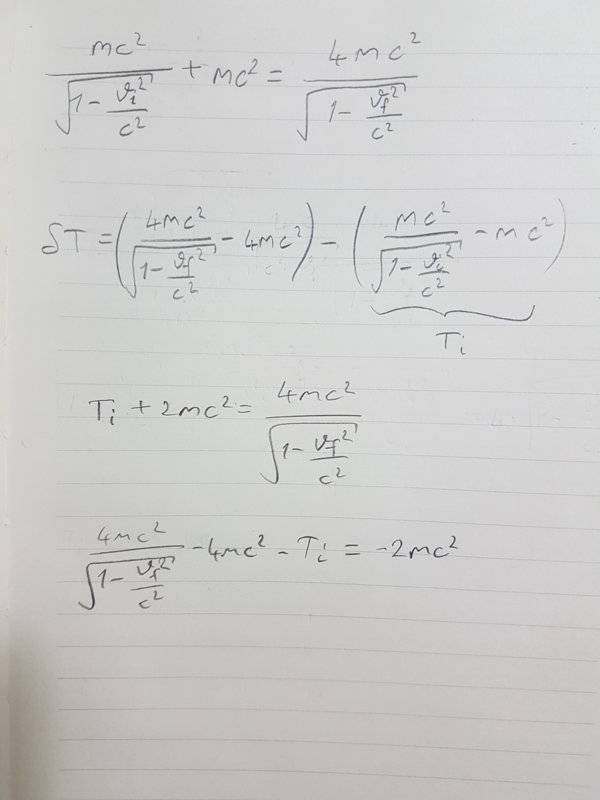 mc² / √(1 - v_i²/c²) + mc² = 4mc² / √(1 - v_f²/c²)
δT = (4mc² / √(1 - v_f²/c²) - 4mc²) - (mc² / √(1 - v_i²/c²) - mc²)
T_i
T_i + 2mc² = 4mc² / √(1 - v_f²/c²)
4mc² / √(1 - v_f²/c²) - 4mc² - T_i = -2mc²